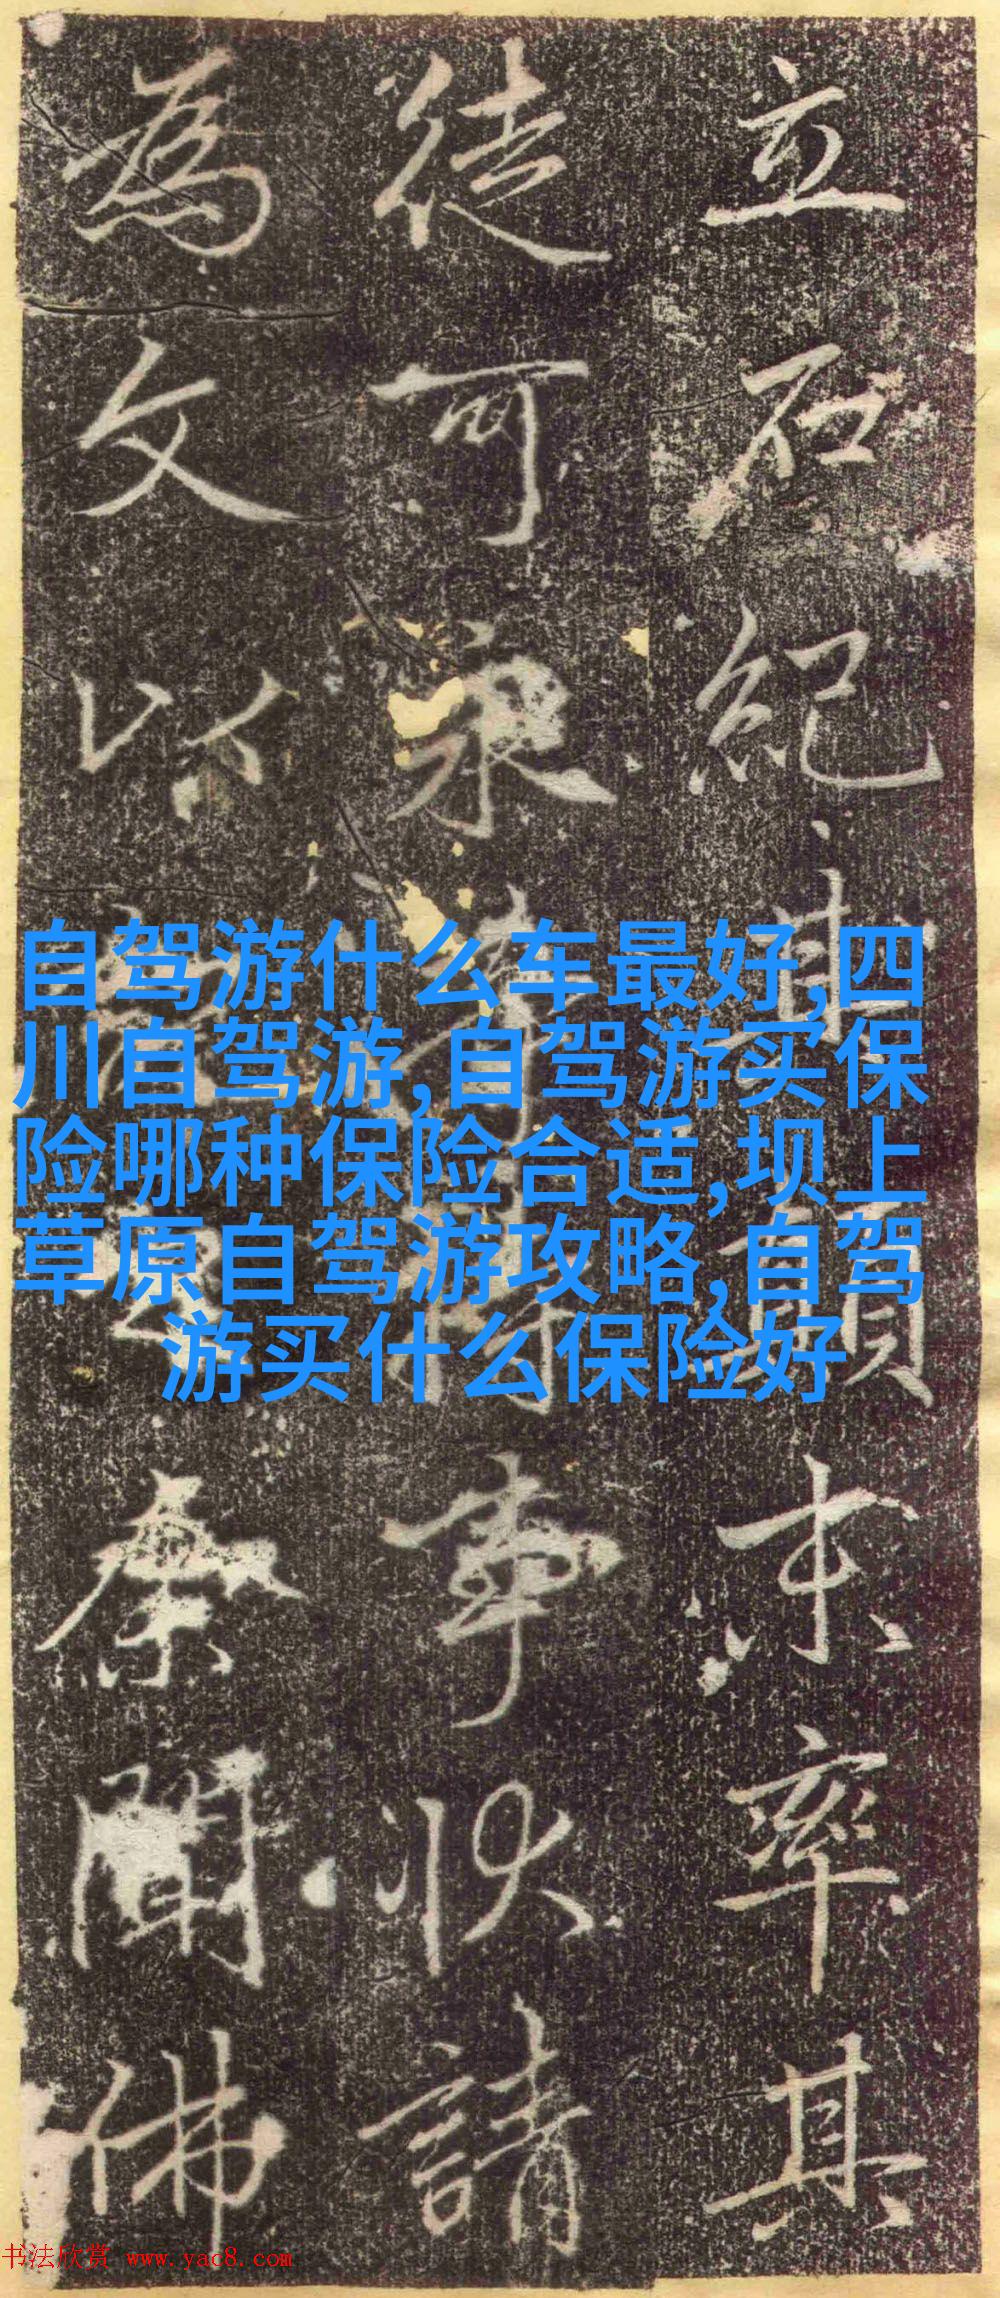 立石紀其顛末率其
徒可永事狀請
為文以聞佛
自驾游什么车最好,四
川自驾游,自驾游买保
险哪种保险合适,坝上
草原自驾游攻略,自驾
游买什么保险好
书法欣赏 www.yac8.com